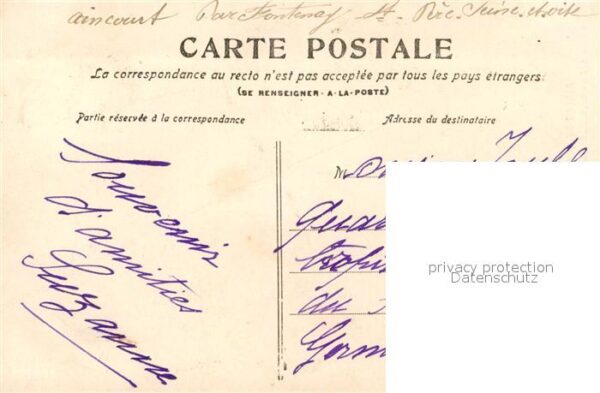 aincourt Par Fontenay St. Père Seine et oise
CARTE POSTALE
La correspondance au recto n'est pas acceptée par tous les pays étrangers
(SE RENSEIGNER A LA POSTE)
Partie réservée à la correspondance
Adresse du destinataire
Souvenir
d'amitiés
Suzanne
M
du
privacy protection
Datenschutz